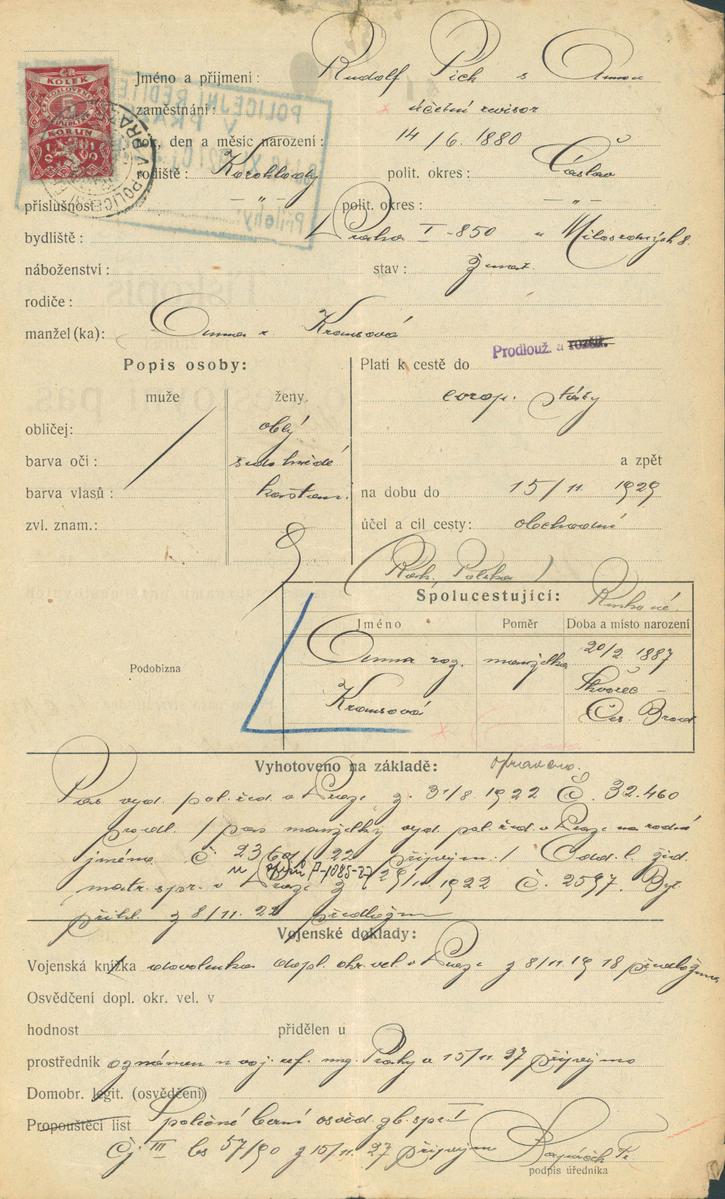 KOLEK
5
KORUN
POLICEJNÍ ŘEDITEL
V PRA
Přílohy:
Jméno a příjmení: Rudolf Pick s Annou
zaměstnání: účetní revisor
rok, den a měsíc narození: 14/6. 1880
rodiště: polit. okres: Čáslav
příslušnost: — „ — polit. okres: — „ —
bydliště: Praha I - 850 u Milosrdných 8.
náboženství: stav: ženat.
rodiče:
manžel(ka): Anna r. Kramsová
Prodlouž. a rozšiř.
Popis osoby: Platí k cestě do
muže ženy evrop. státy
obličej: oblý
barva očí: hnědé a zpět
barva vlasů: kaštan. na dobu do 15/11 1929
zvl. znam.: účel a cíl cesty: obchodní
(Rak, Polsko)
Spolucestující:
Jméno Poměr Doba a místo narození
Anna roz. manželka 20/2. 1887
Kramsová Škvorec -
Čes. Brod
Podobizna
Vyhotoveno na základě: opraveno.
Pas vyd. pol. řed. v Praze z. 31/8. 1922 Č. 32.460
prodl. / pas manželky vyd. pol. řed. v Praze na rodné
jméno Č. /22 připojen. /
matr. spr. v Praze z 29/11. 1922 Č. 2597. Byt.
přihl. z 8/11. 22 předložen
Vojenské doklady:
Vojenská knížka dovolenka dopl. okr. vel. v Praze z 8/11. 1918 předložena
Osvědčení dopl. okr. vel. v
hodnost přidělen u
prostředník oznámen voj. ref. mg. Prahy 15/11. 27 připojeno
Domobr. legit. (osvědčení)
Propouštěcí list Společné berní osvěd. gb. spr. I
Čj III bs 57/90 z 15/11. 27 připojen
podpis úředníka